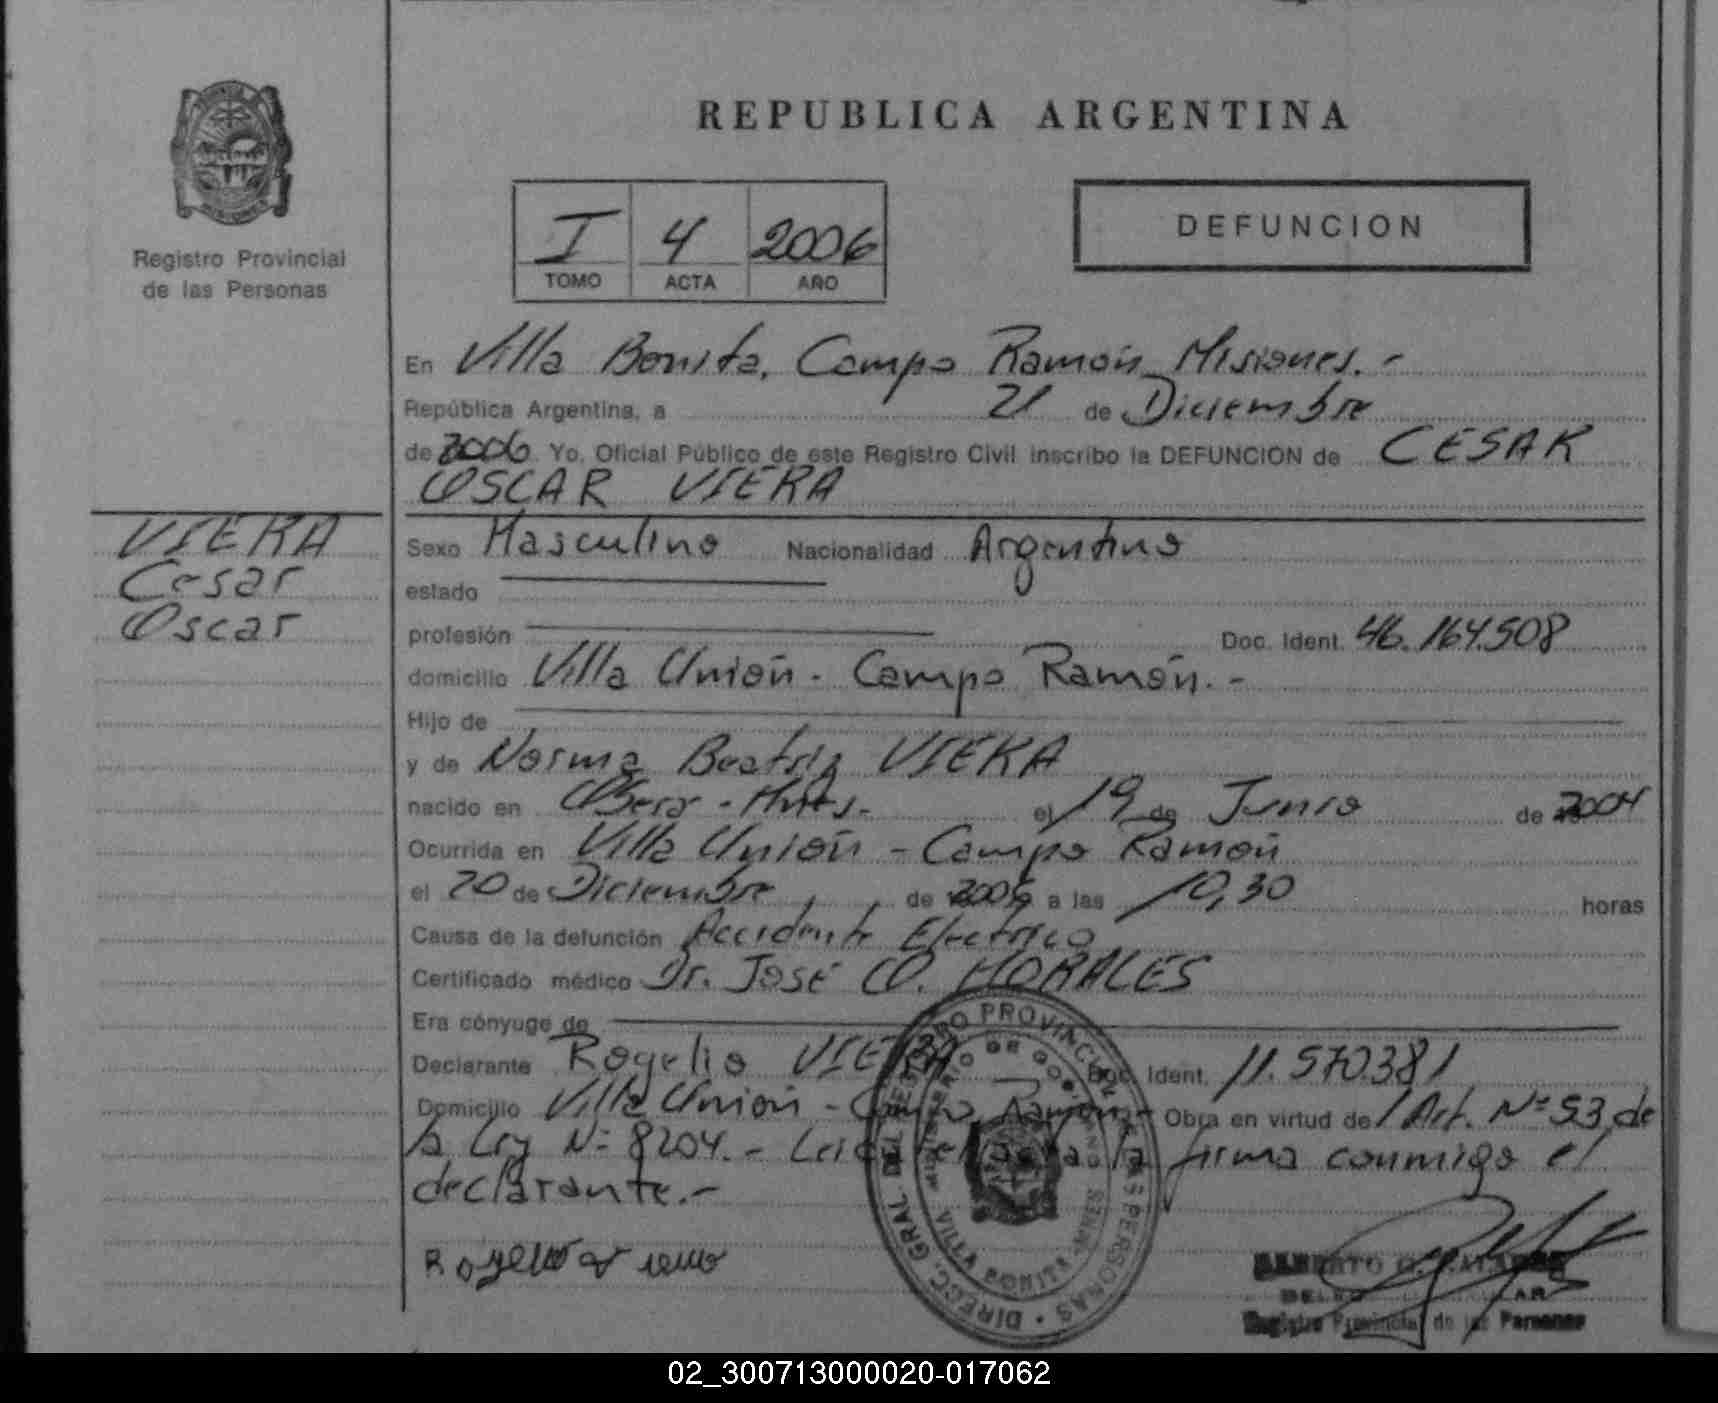 REPUBLICA ARGENTINA
Registro Provincial
de las Personas
I 4 2006
TOMO ACTA AÑO
DEFUNCION
En Villa Bonita, Campo Ramón Misiones.-
República Argentina, a 21 de Diciembre
de 2006 Yo, Oficial Público de este Registro Civil inscribo la DEFUNCION de CESAR
OSCAR VIERA
VIERA
Cesar
Oscar
Sexo Masculino Nacionalidad Argentino
estado
profesión Doc. Ident. 46.164.508
domicilio Villa Unión - Campo Ramón.-
Hijo de
y de Norma Beatriz VIERA
nacido en Obera - Mnes.- el 19 de Junio de 2004
Ocurrida en Villa Unión - Campo Ramón
el 20 de Diciembre de 2006 a las 10,30 horas
Causa de la defunción Accidente Electrico
Certificado médico Dr. José O. MORALES
Era cónyuge de
Declarante Rogelio VIERA Doc. Ident. 11.570.381
Domicilio Villa Unión - Campo Ramón - Obra en virtud de l Art. Nº 53 de
la Ley Nº 8204.- Leida el acta la firma conmigo el
declarante.-
DIRECC. GRAL DEL REGISTRO PROVINCIAL DE LAS PERSONAS
MINISTERIO DE GOBIERNO
VILLA BONITA - MNES
Registro Provincial de las Personas
02_300713000020-017062